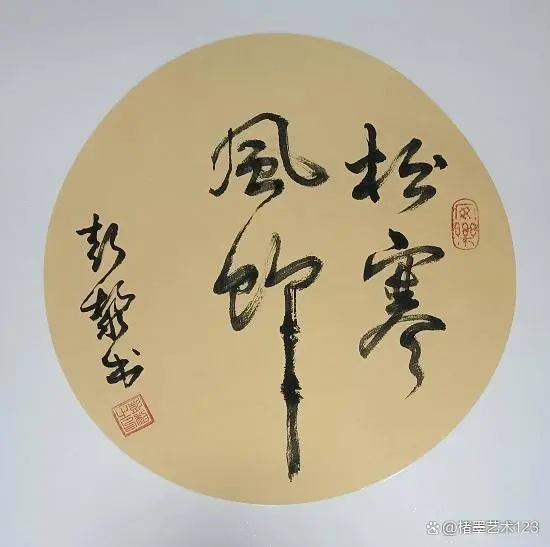 松寒
風節
彭书
@楮墨艺术123